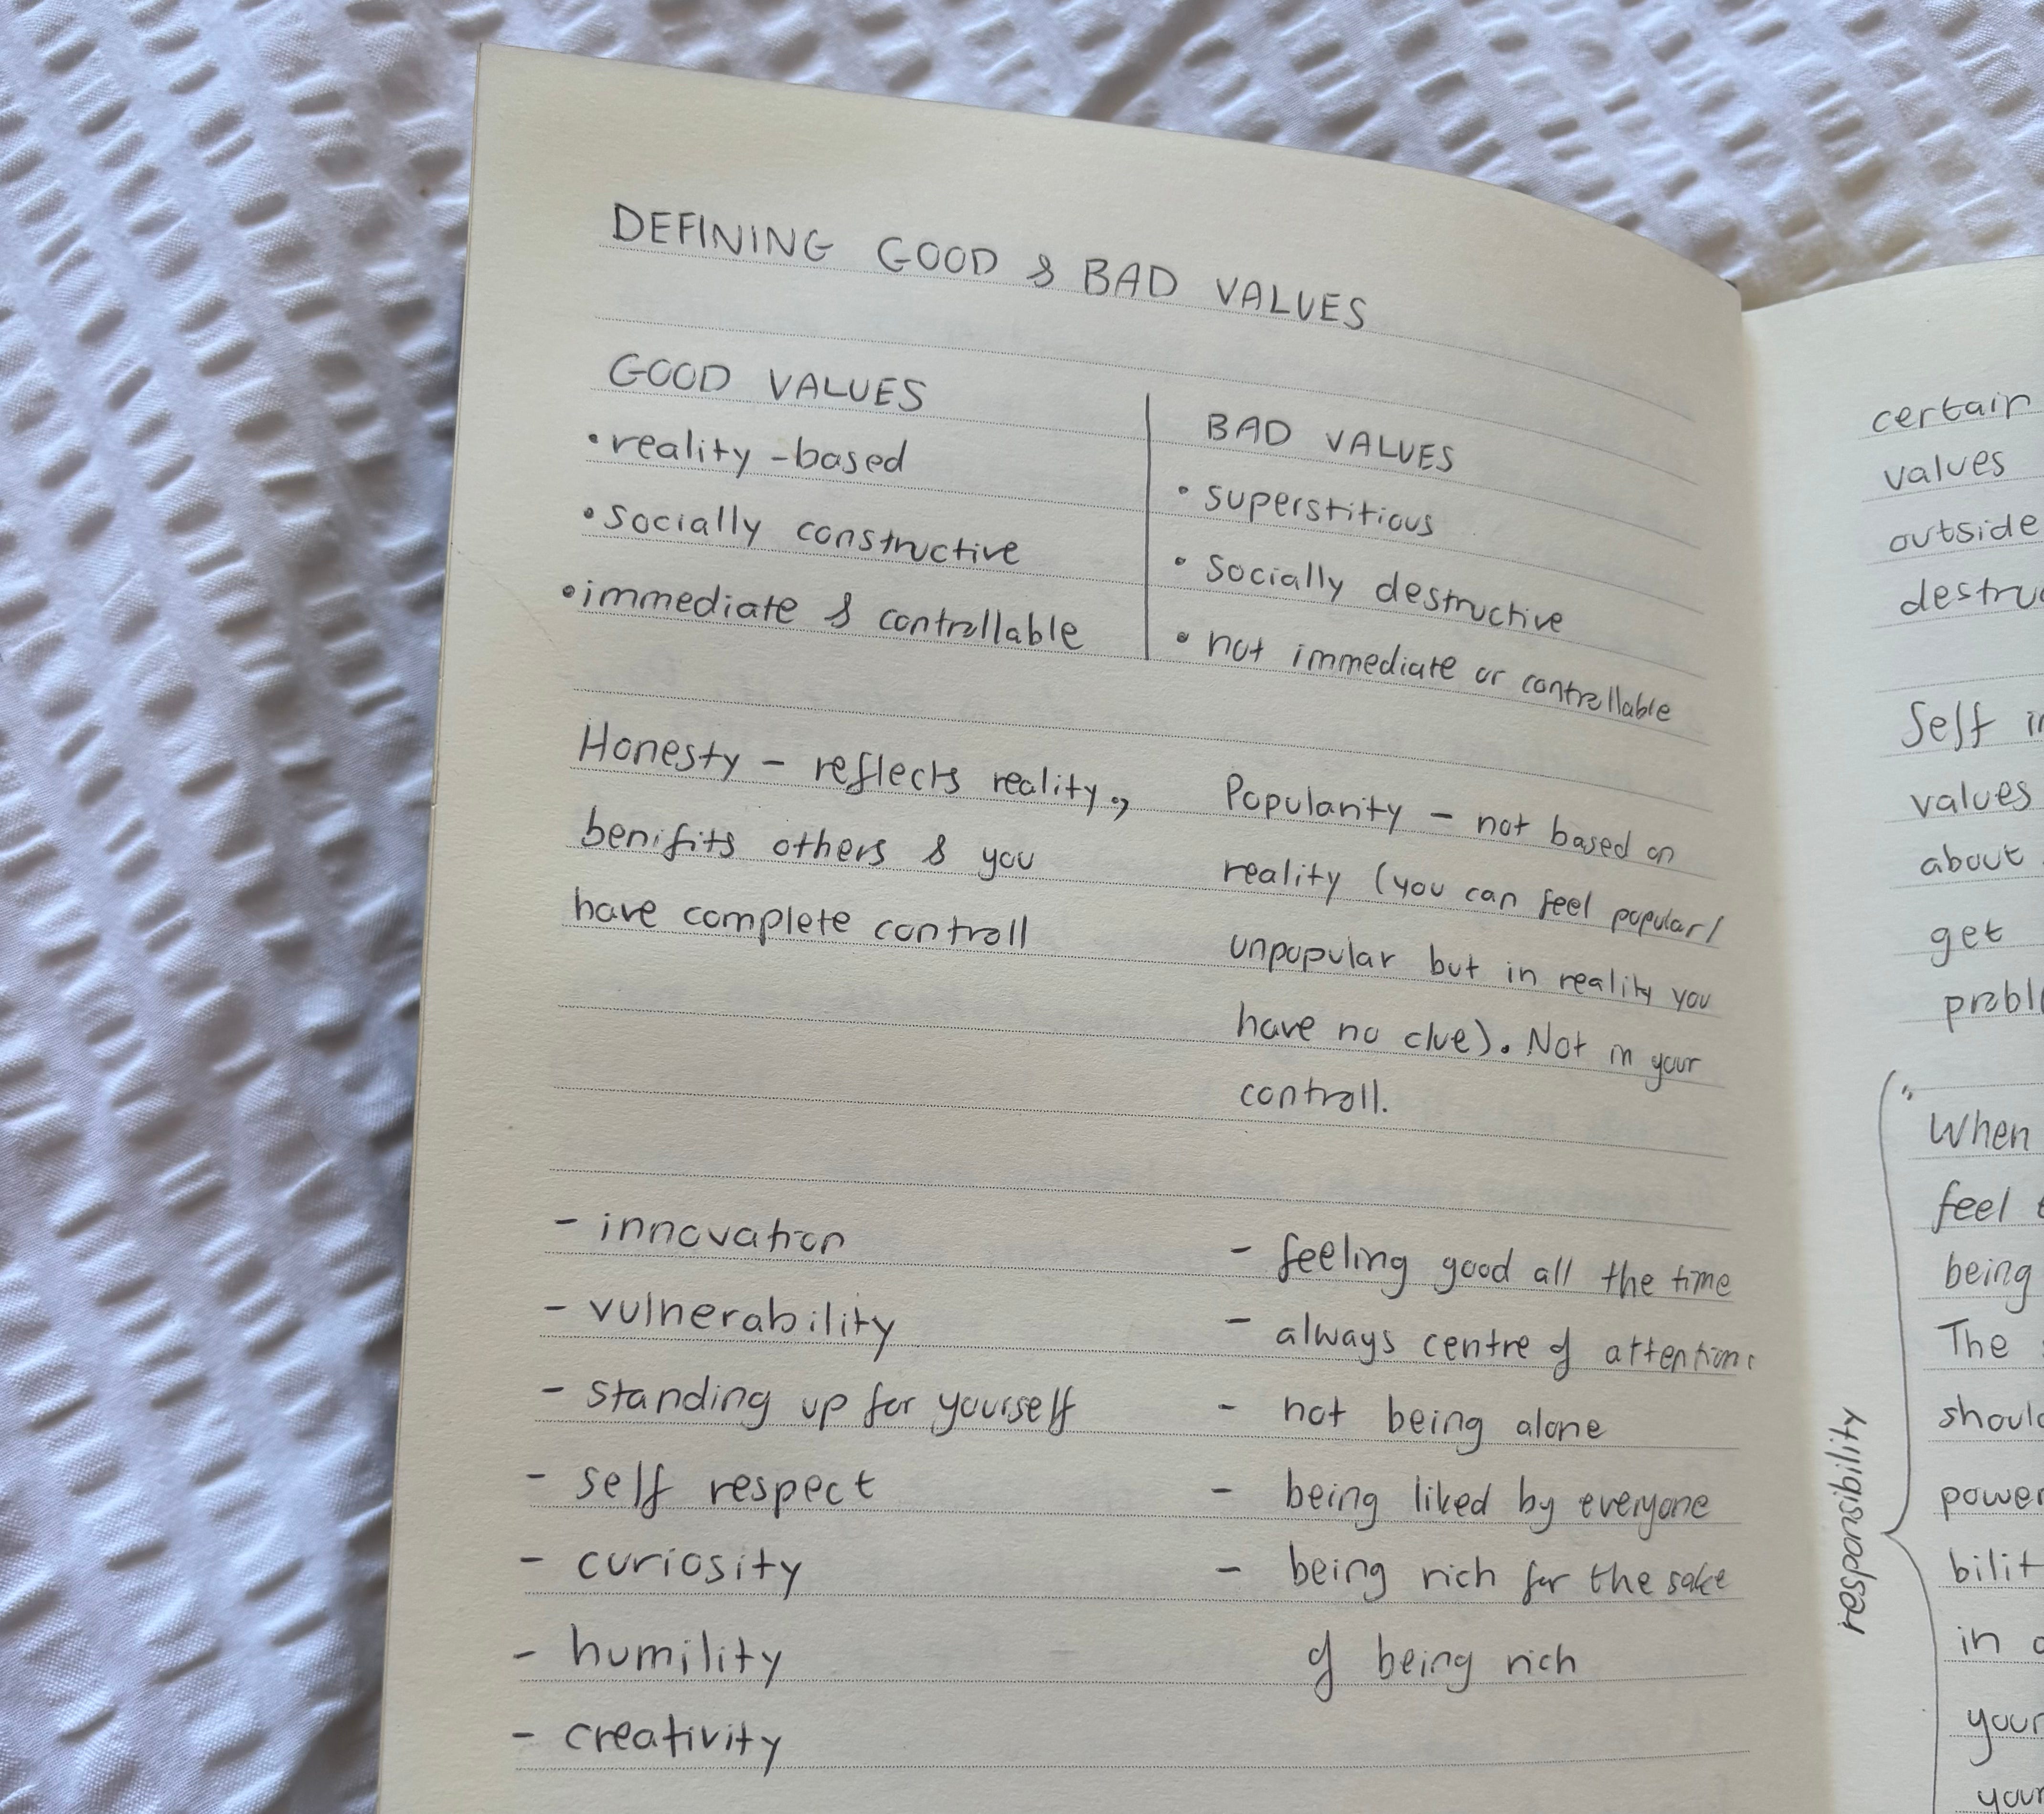 DEFINING GOOD & BAD VALUES
GOOD VALUES
• reality-based
• socially constructive
• immediate & controllable
BAD VALUES
• superstitious
• socially destructive
• not immediate or controllable
Honesty – reflects reality,
benifits others & you
have complete controll
Popularity – not based on
reality (you can feel popular/
unpopular but in reality you
have no clue). Not in your
controll.
- innovation
- vulnerability
- standing up for yourself
- self respect
- curiosity
- humility
- creativity
- feeling good all the time
- always centre of attention
- not being alone
- being liked by everyone
- being rich for the sake
of being rich
certain
values
outside
Self
values
about
get
responsibility
"
When
feel
being
The
power
in